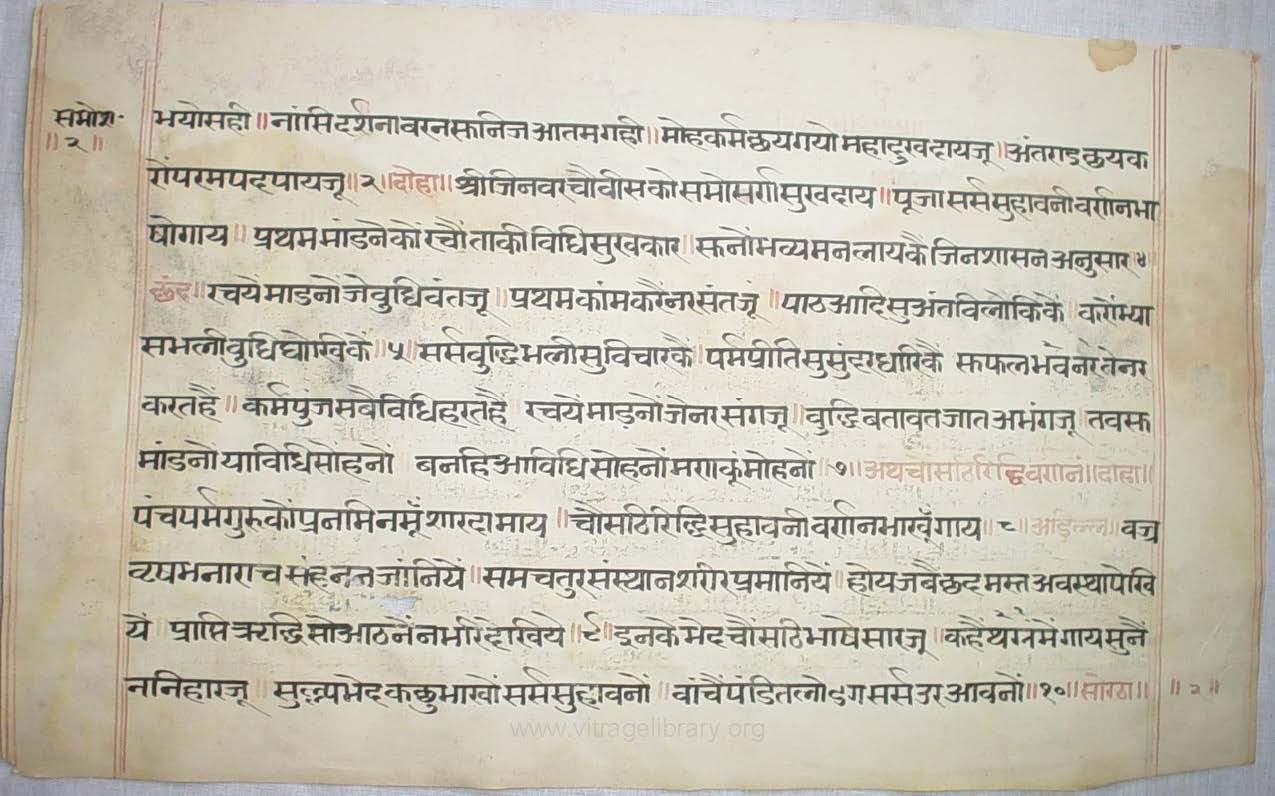 समोश॰
॥२॥
भयोसही॥नांसिदर्शनावरनसूनिजआतमगही॥मोहकर्मछयगयोमहादुखदायजू॥अंतराइछयक
रोंपरमपदपायजू॥२॥दोहा॥श्रीजिनवरचौवीसकोसमोसर्णसुखदाय॥पूजासर्ससुहावनीवर्णनभा
षोगाय॥प्रथममांडनेकोंरचौंताकीविधिसुखकार॥सूनोंभव्यमनलायकैंजिनशासनअनुसार४
छंद॥रचयेंमाडनोंजेवुधिवंतजू॥प्रथमकांमकरैंनरसंतजूं॥पाठआदिसुअंतविलोकिकें करोंम्या
सभलीवुधिघोखिकें॥५॥सर्सवुद्धिभलीसुविचारकैं॥पर्मप्रीतिसुसुंदरधारिकैं सूफलभवेनरतेनर
करतहैं॥कर्मपुंजसबैविधिहरतहैं रचयेंमाडनोंजेनरसंगजू॥वुद्धिबतावतजातअभंगजू तवसू
मांडनोंयाविधिसोंहनों बनहिआविधिसोहनोंमराकूंमोहनों॥७॥अथचौसठिरिद्धिवर्णनं॥दोहा॥
पंचपर्मगुरुकोंप्रनमिनमूँशारदामाय॥चौसठिरिद्धिसुहावनीवर्णनभाखूँगाय॥८॥अडिल्ल॥वज्र
वृषभनाराचसंहननजांनियें॥समचतुरसंस्थानशरीरप्रमानियें॥होयजबैछदमस्तअवस्थापेखि
यें प्राप्तिऋद्धिसोआठनंनभरिदेखिये॥९॥इनकेभेदचौंसठिभाषेसारजू॥कहैंथगायसुनैं
ननिहारजू॥सुलपभेदकछुभाखोंसर्ससुहावनों॥वांचैंपंडितलोइगसर्सउरआवनों॥१०॥सोरठा॥
॥२॥
www.vitragelibrary.org